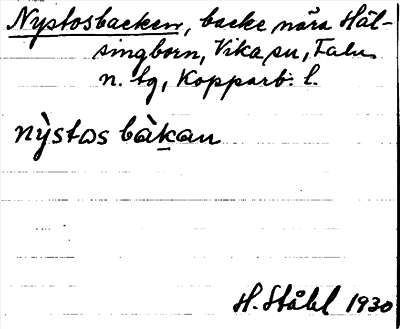 Nystosbacken, backe nära Häl-
singborn, Vika sn, Falu
n. tg, Kopparb: l.
nỳstɷs bàkan
H. Ståhl 1930